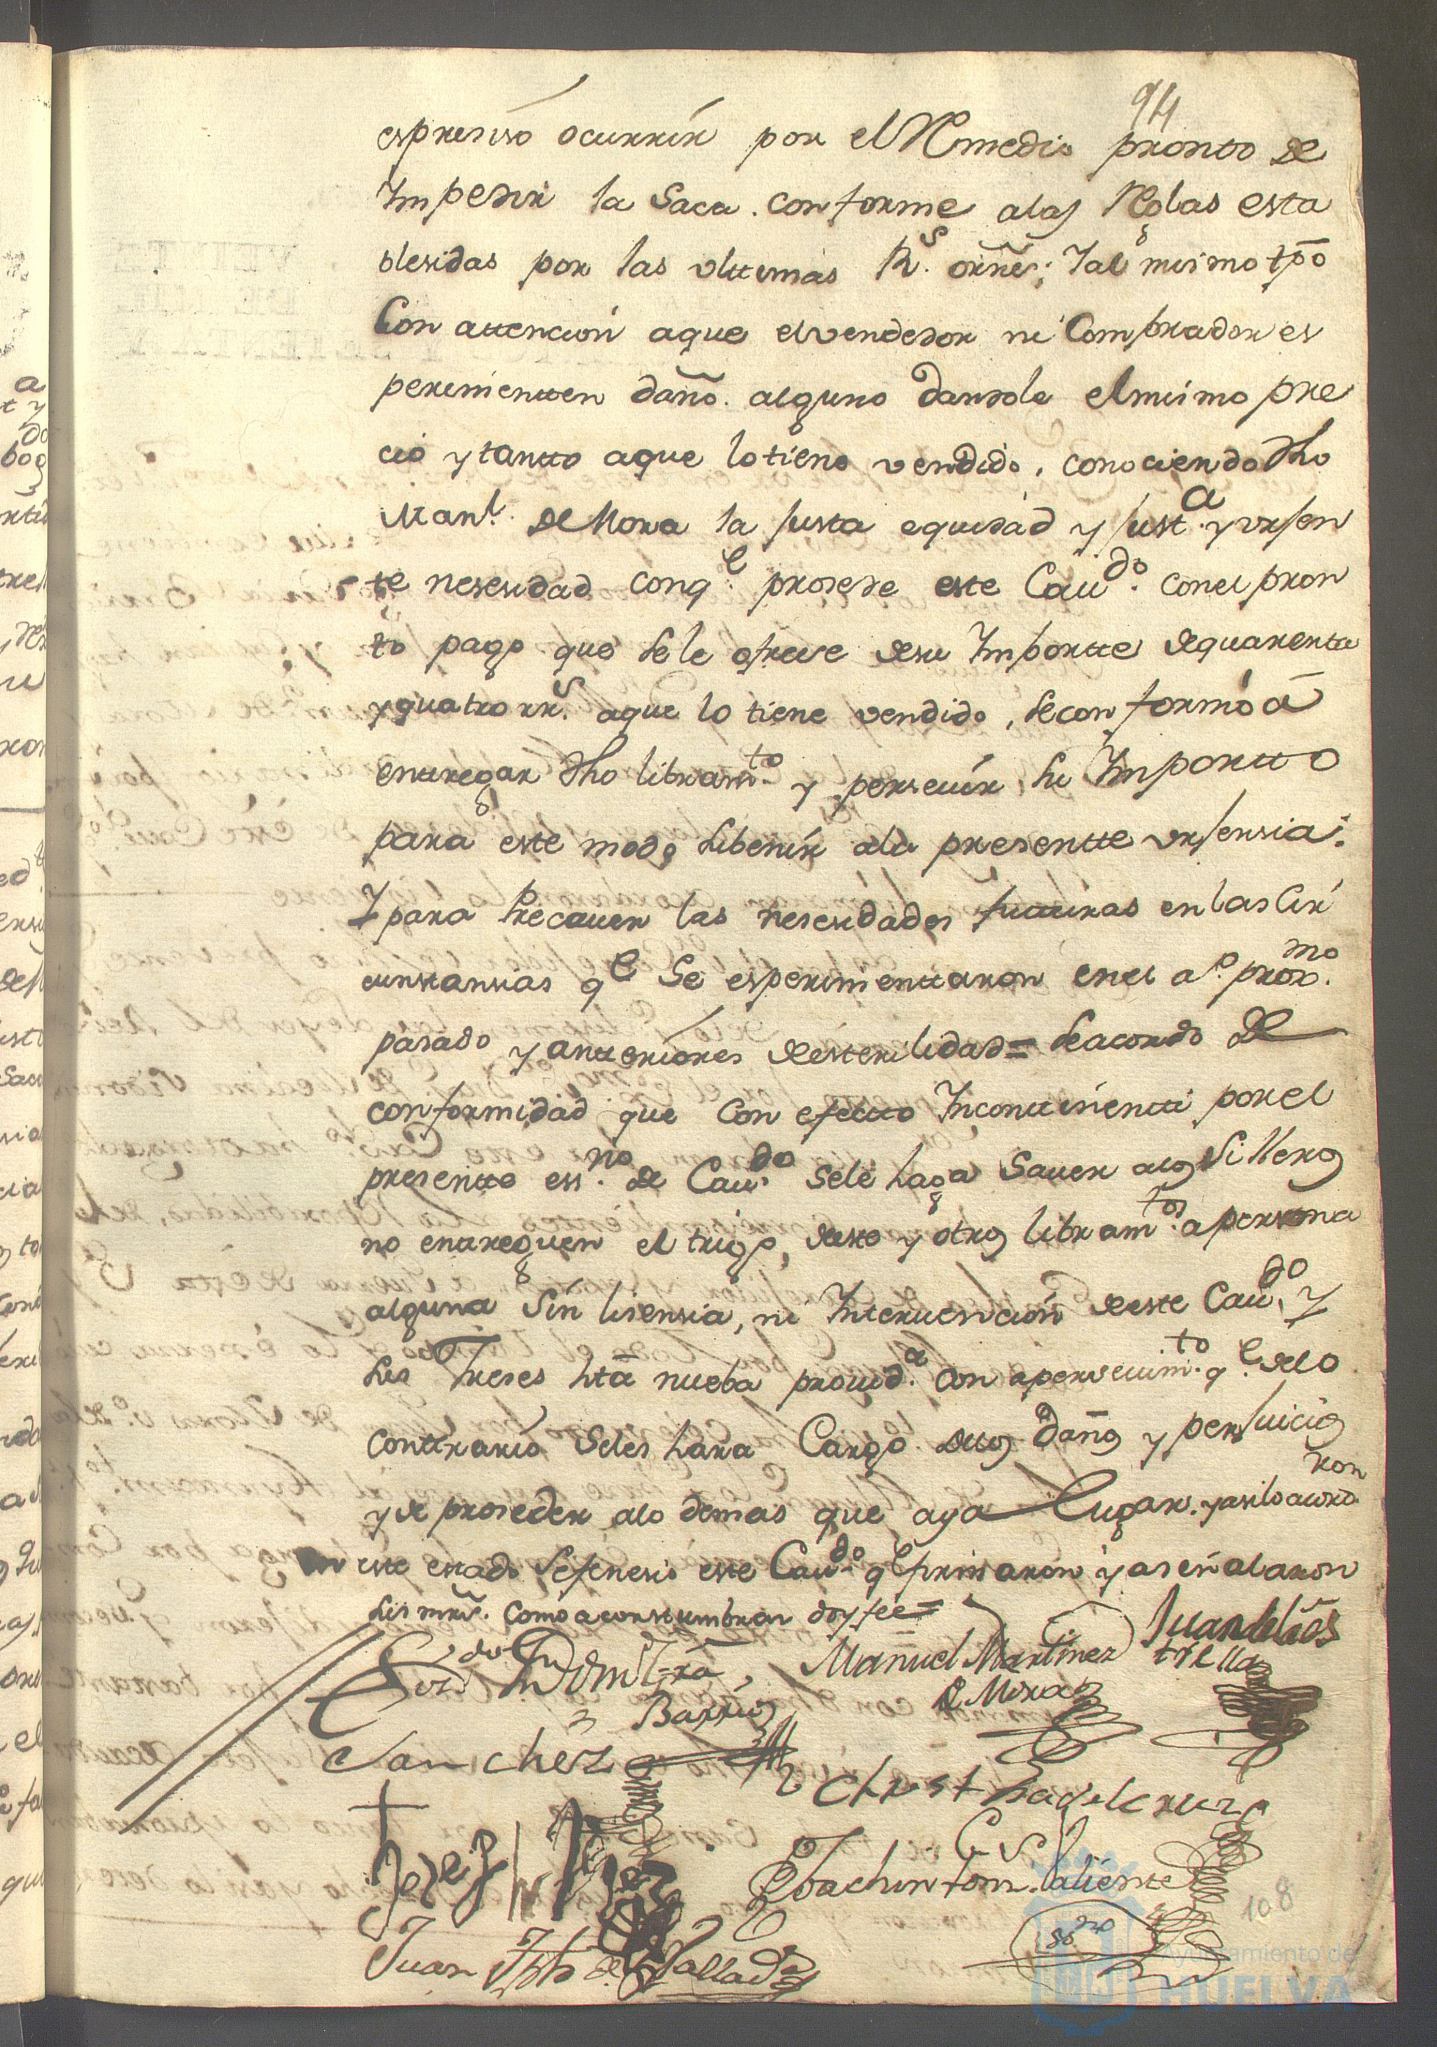 94
espresiso ocurrir por el Remedio pronto de
Impedir la Saca. conforme alas Reglas esta
blesidas por las ultimas Rs. orñes; Yal mismo tpõ
Con attencion aque elvendedor ni Comprador es
perimentten daño. alguno dandole elmismo pre
cio ytantto aque lotiene vendido, conociendo dho
Manl. de Mora la Justa equidad y Justa. yurjen
te nesesidad conqe prosede este Caudo. conel pron
to pago que sele ofrese desu Importte dequarenta
yquatro rrs. aque lo tiene vendido, seconformó ā
entregar dho libramto. y persevir su Importto
para este modo subenir ala presentte urjensia:
Y para Precauer las nesesidades futturas enlas Cir
cunstansias qe Se esperimenttaron enel ao. proxmo.
pasado y antteriores deesterilidad= Seacordo de
conformidad que con efectto Incontinentti porel
presentto essno. de Caudo. sele haga Sauer alos Silleros
no entreguen el trigo, deste y otros libramtos. a persona
alguna sin lisensia, ni Interuencion deeste Caudo. Y
sus Treses htā nueba prouida. con apersevimto. qe. delo
contrario Seles hara Cargo. delos daños y perjuicios
y de proseder alo demas que aya Lugar. yasilo acorda
ron
en este estado Sefenesio este Caudo. qe firmaron y aseñalaron
sus mrds. como acostumbran doyfee=
Manuel Martinez
de Mora
Juan delaos
trella
Barrios
Sanchez
Christ hadelcruz
Perez
Joachin fonz. Valiente
Juan de Vallados
ssno
108
Ayuntamiento de
HUELVA